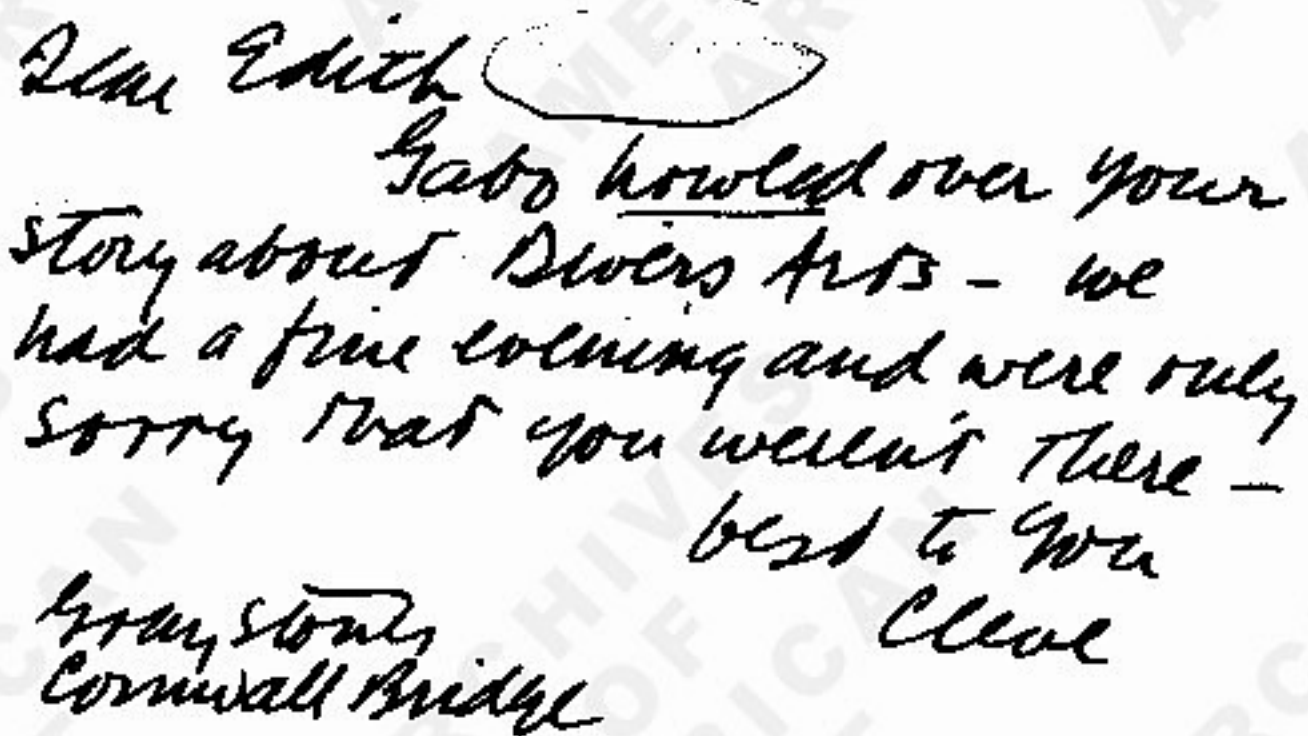 Dear Edith
Gabo howled over your
story about Divers Arts - we
had a fine evening and were only
sorry that you weren't there -
best to you
Cleve
Gray Stones
Cornwall Bridge
ARCHIVES
OF
AMERICAN
ART